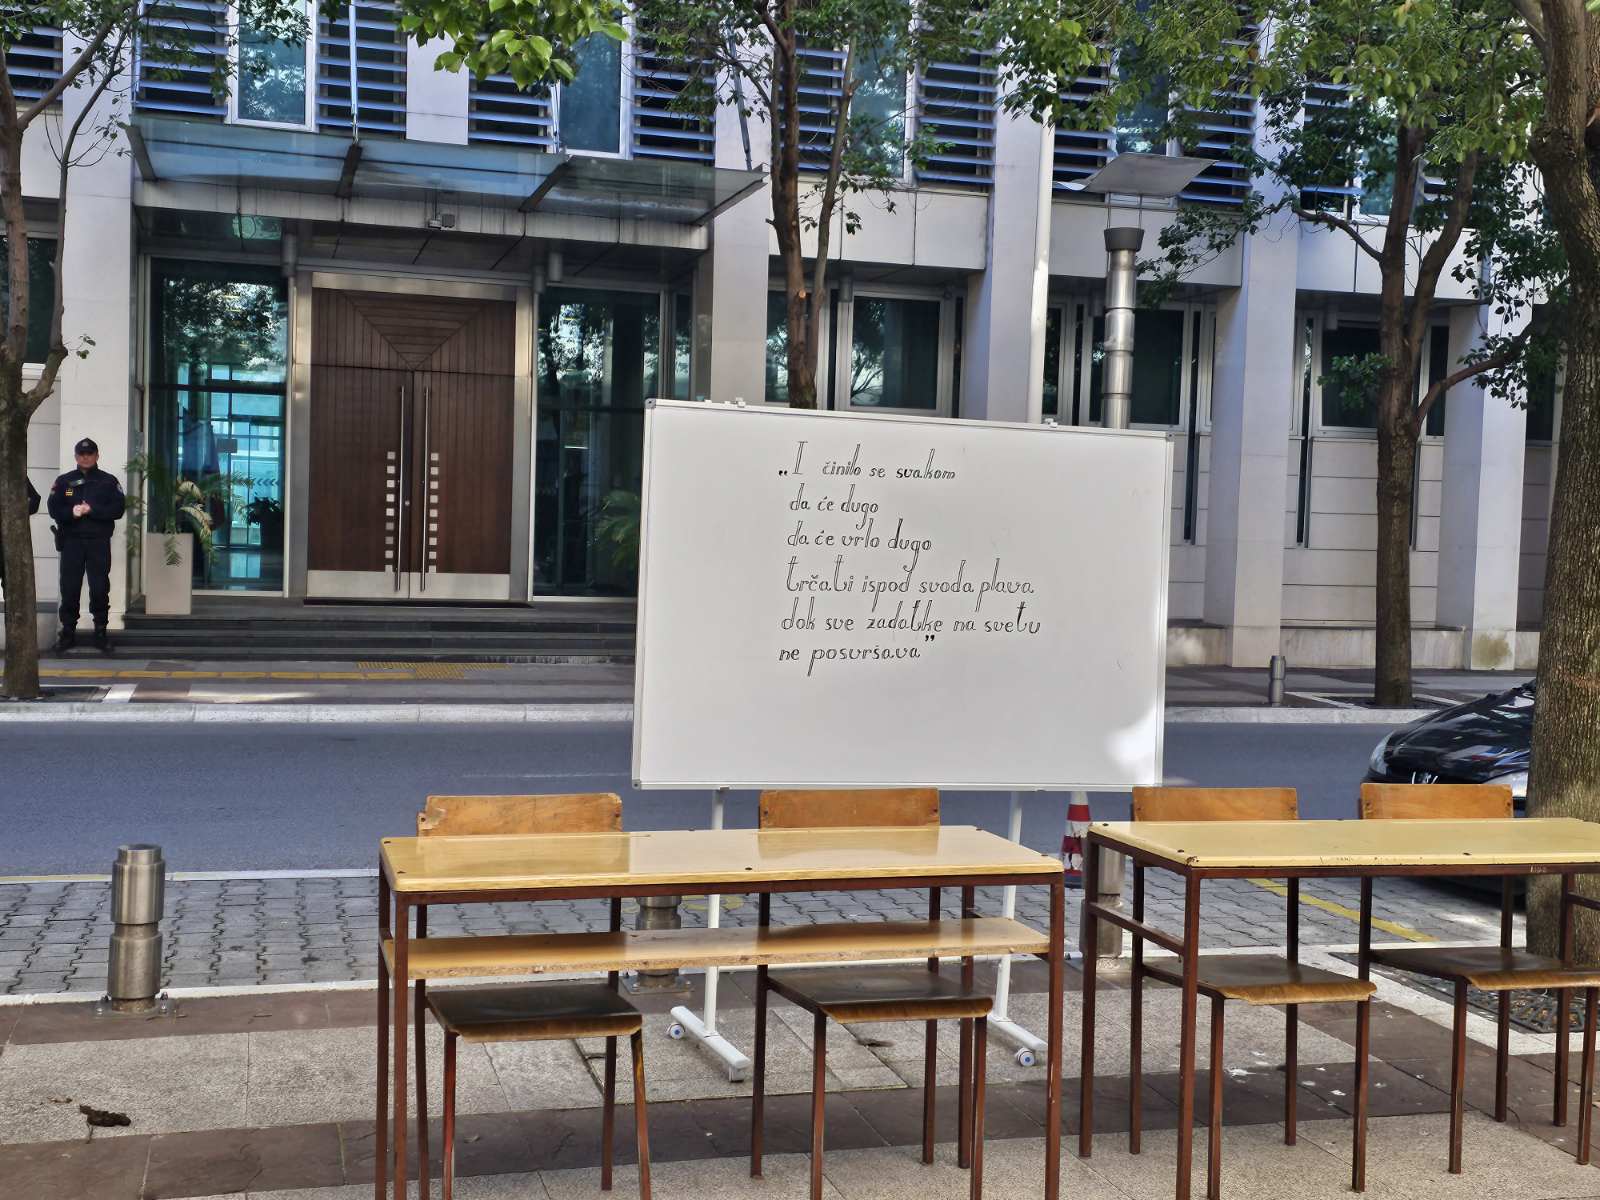 „I činilo se svakom
da će dugo
da će vrlo dugo
trčati ispod svoda plava
dok sve zadatke na svetu
ne posvršava”